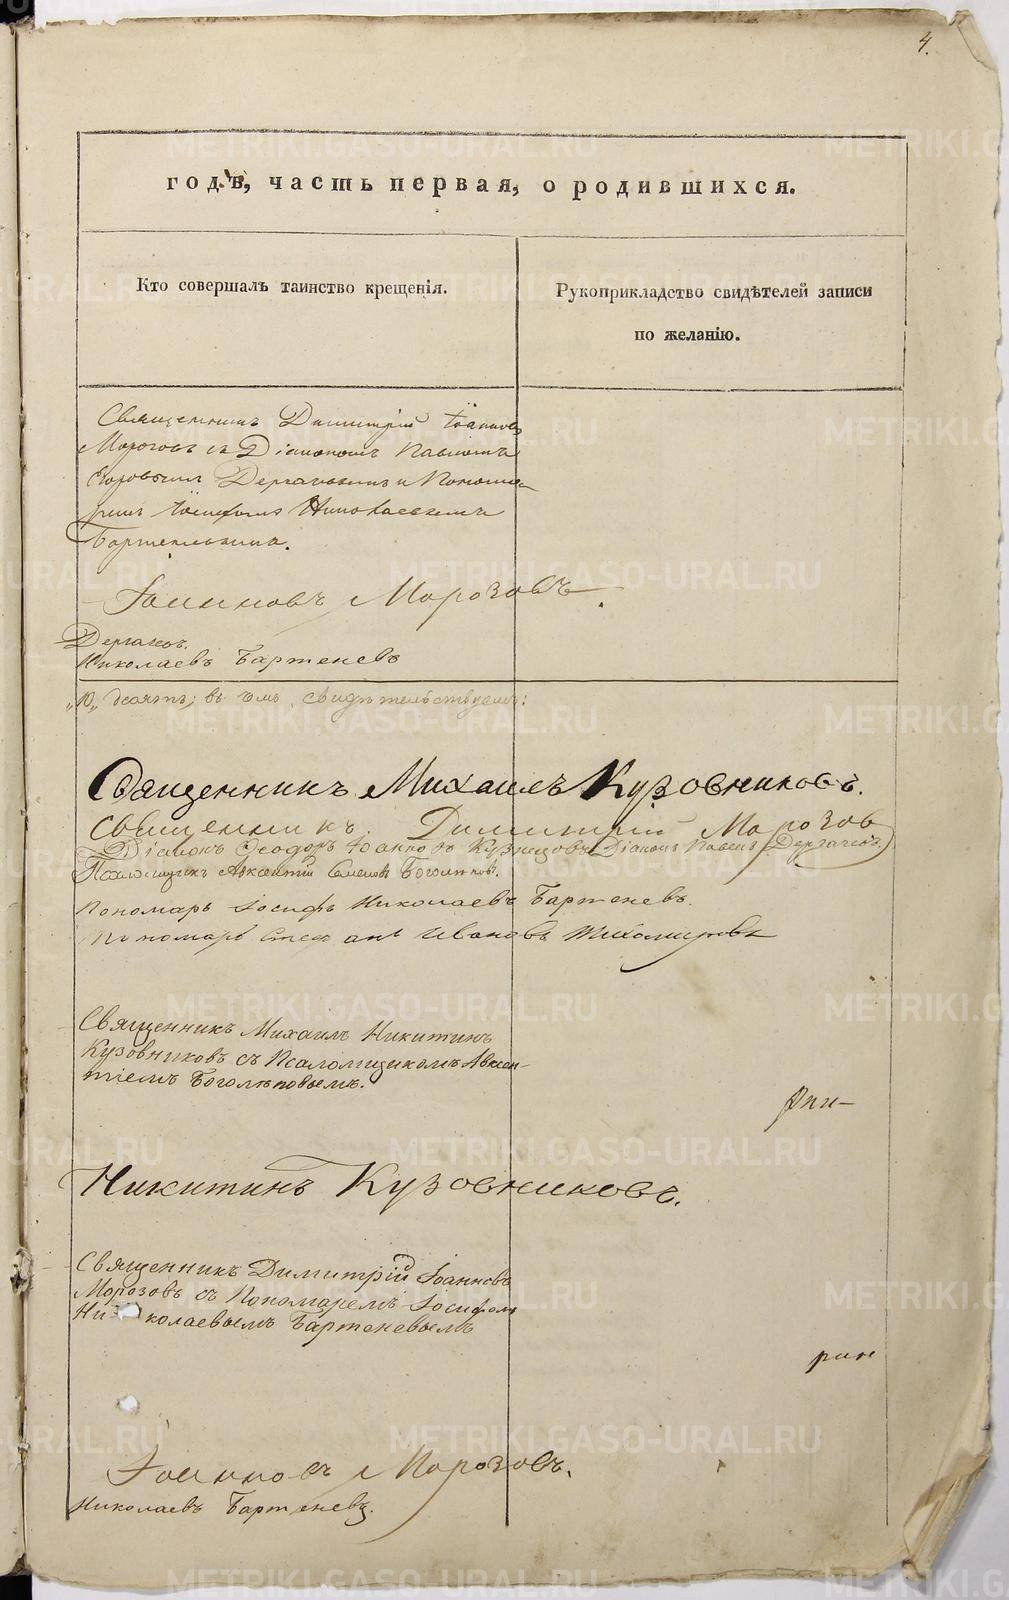 4.
годъ, часть первая, о родившихся.
Кто совершалъ таинство крещенія.
Рукоприкладство свидѣтелей записи
по желанію.
Священникъ Димитрій Іоанновъ
Морозовъ съ Діакономъ Павломъ
Дергачевымъ и Понома-
ремъ Іосифомъ Николаевымъ
Бартеневымъ.
Іоанновъ Морозовъ.
Дергачевъ.
Николаевъ Бартеневъ
„10„ десять; въ чемъ свидѣтельствуемъ:
Священникъ Михаилъ Кузовниковъ.
Священникъ Димитрій Морозовъ
Діаконъ Ѳеодоръ Іоанновъ Кузнецовъ Діаконъ Павелъ Дергачевъ.
Псаломщикъ Авксентій Семеновъ Боголѣповъ.
Пономарь Іосифъ Николаевъ Бартеневъ.
Пономарь Стефанъ Ивановъ Тихомировъ
Священникъ Михаилъ Никитинъ
Кузовниковъ съ Псаломщикомъ Авксен-
тіемъ Боголѣповымъ.
Никитинъ Кузовниковъ.
Священникъ Димитрій Іоанновъ
Морозовъ съ Пономаремъ Іосифомъ
Николаевымъ Бартеневымъ
Іоанновъ Морозовъ.
Николаевъ Бартеневъ.
METRIKI.GASO-URAL.RU